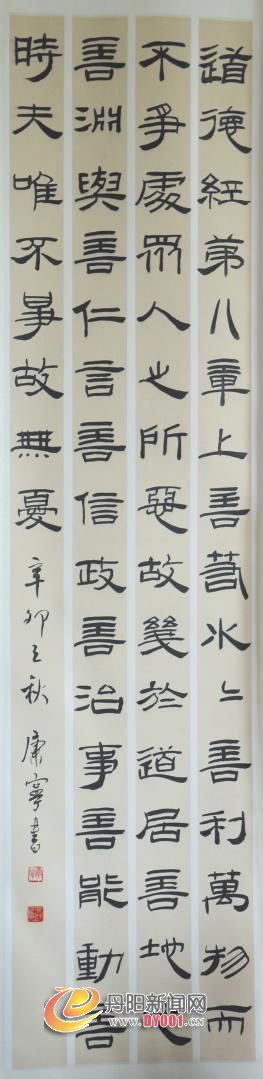 道德經第八章上善若水〻善利萬物而
不爭處眾人之所惡故幾於道居善地心
善淵與善仁言善信政善治事善能動善
時夫唯不爭故無憂 辛卯之秋 康寧書
丹阳新闻网
www.DY001.cn